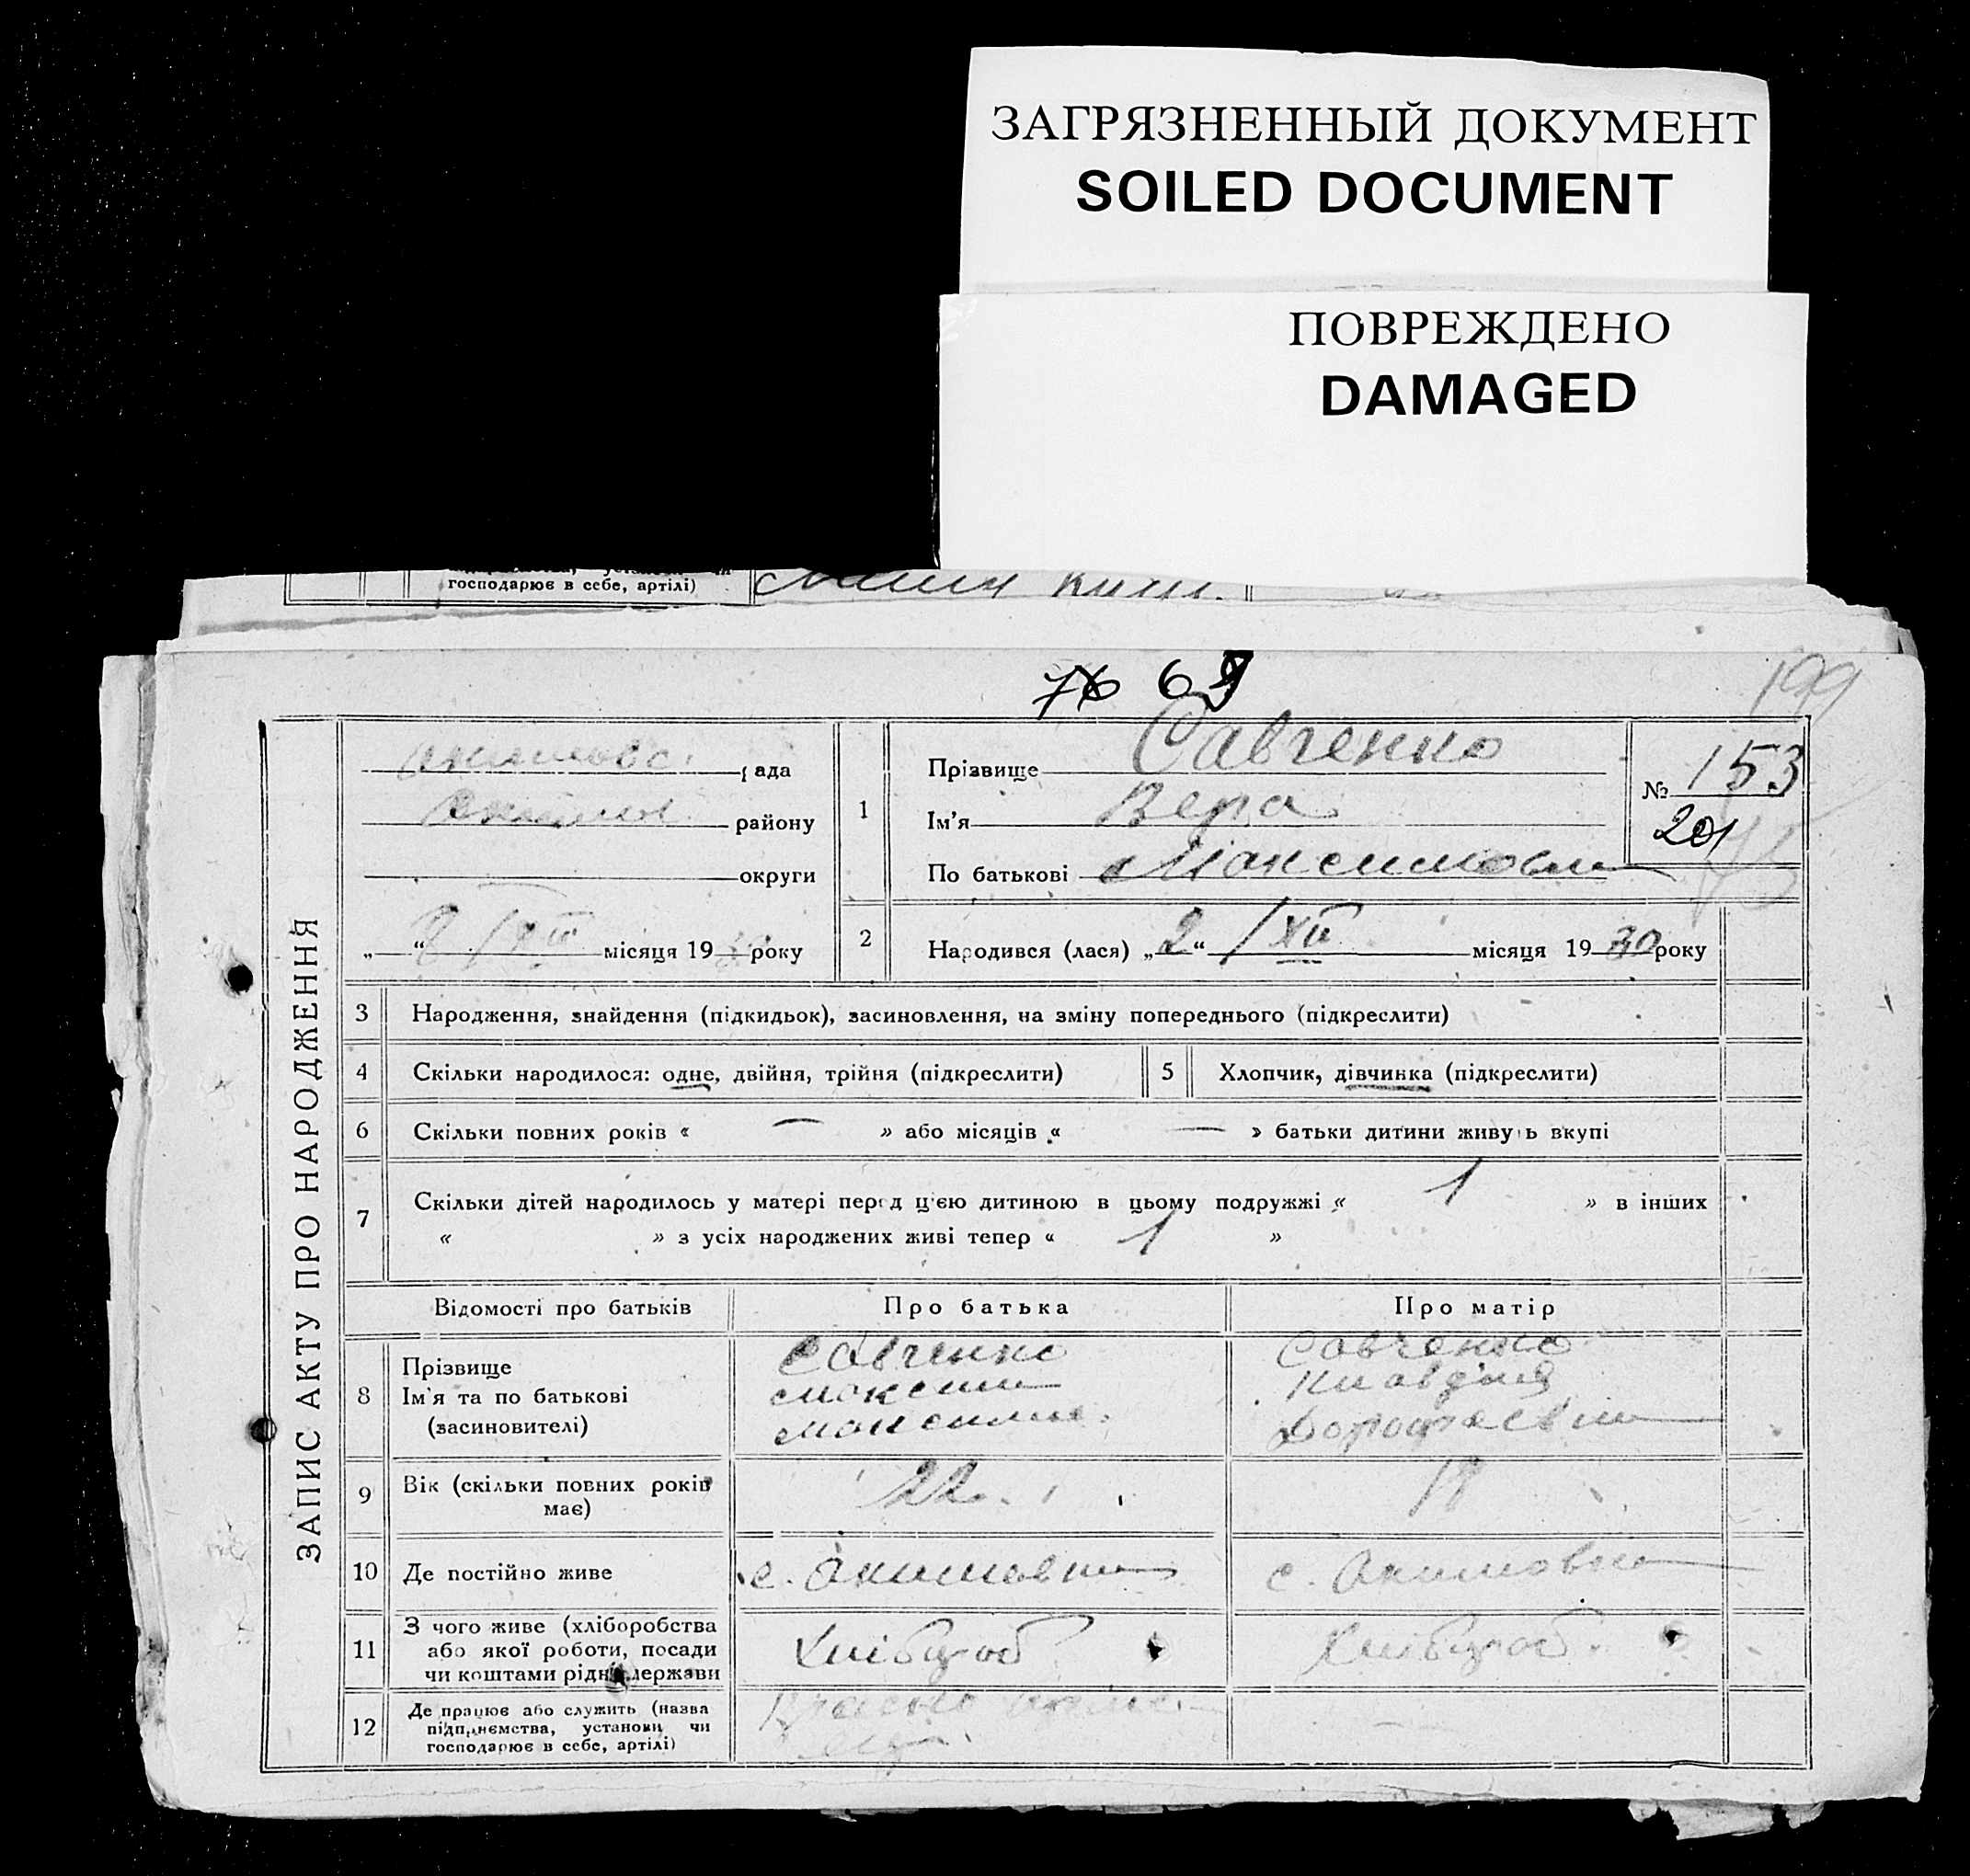 ЗАГРЯЗНЕННЫЙ ДОКУМЕНТ
SOILED DOCUMENT
ПОВРЕЖДЕНО
DAMAGED
господарює в себе, артілі)
76 69
199
ЗАПИС АКТУ ПРО НАРОДЖЕННЯ
рада
району
округи
місяця 19 року
1
Прізвище Савченко
Ім'я Вера
По батькові Максимовна
№ 153
201
2 Народився (лася) „2“ /XII місяця 1930 року
3 Народження, знайдення (підкидьок), засиновлення, на зміну попереднього (підкреслити)
4 Скільки народилося: одне, двійня, трійня (підкреслити) 5 Хлопчик, дівчинка (підкреслити)
6 Скільки повних років « — » або місяців « — » батьки дитини живуть вкупі
7 Скільки дітей народилось у матері перед цією дитиною в цьому подружжі « 1 » в інших
« » з усіх народжених живі тепер « 1 »
Відомості про батьків Про батька Про матір
8 Прізвище Савченко Савченко
Ім'я та по батькові Максим Клавдия
(засиновителі) Максимов. Дорофеевна
9 Вік (скільки повних років має) 22 18
10 Де постійно живе с. Акимовка с. Акимовка
11 З чого живе (хліборобства або якої роботи, посади чи коштами рідні, держави Хлібороб Хлібороб
12 Де працює або служить (назва підприємства, установи чи господарює в себе, артілі)